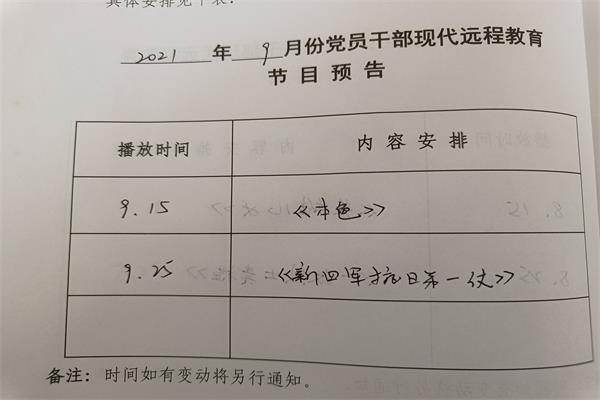 具体安排见下表:
2021 年 9 月份党员干部现代远程教育
节目预告
播放时间 内容安排
9.15 《本色》
9.25 《新四军抗日第一仗》
备注：时间如有变动将另行通知。